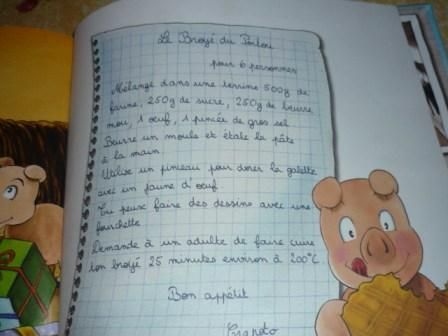 Le Broyé du Poitou
pour 6 personnes
Mélange dans une terrine 500g de
farine, 250g de sucre, 250g de beurre
mou, 1 œuf, 1 pincée de gros sel
Beurre un moule et étale la pâte
à la main.
Utilise un pinceau pour dorer la galette
avec un jaune d'œuf
Tu peux faire des dessins avec une
fourchette
Demande à un adulte de faire cuire
ton broyé 25 minutes environ à 200°C
Bon appétit